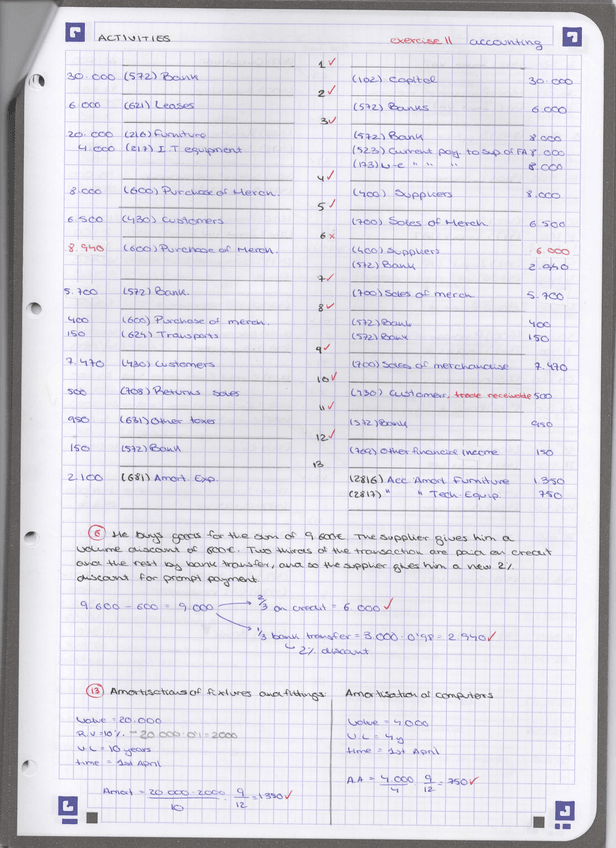 ACTIVITIES exercise 11 accounting
1 ✓
30.000 (572) Bank (102) Capital 30.000
2 ✓
6.000 (621) Leases (572) Banks 6.000
3 ✓
20.000 (216) Furniture (572) Bank 8.000
4.000 (217) I.T equipment (523) Current pay. to sup of FA 8.000
(173) L-C " " " 8.000
4 ✓
8.000 (600) Purchase of Merch. (400) Suppliers 8.000
5 ✓
6.500 (430) Customers (700) Sales of Merch. 6.500
6 x
8.940 (600) Purchase of Merch. (400) Suppliers 6.000
(572) Bank 2.940
7 ✓
5.700 (572) Bank. (700) Sales of merch. 5.700
8 ✓
400 (600) Purchase of merch. (572) Bank 400
150 (624) Transports (572) Bank 150
9 ✓
7.470 (430) Customers (700) Sales of merchandise 7.470
10 ✓
500 (708) Returns sales (430) Customers, trade receivable 500
11 ✓
950 (631) Other taxes (572) Bank 950
12 ✓
150 (572) Bank (769) Other financial income 150
13
2.100 (681) Amort. Exp. (2816) Acc Amort. Furniture 1.350
(2817) " " Tech. Equip. 750
6 He buys goods for the sum of 9 600€. The supplier gives him a
volume discount of 600€. Two thirds of the transaction are paid on credit
and the rest by bank transfer, and so the supplier gives him a new 2%
discount for prompt payment.
9.600 - 600 = 9.000 2/3 on credit = 6.000 ✓
1/3 bank transfer = 3.000 · 0'98 = 2.940 ✓
2% discount
13 Amortisations of fixtures and fittings
Value = 20.000
R.V = 10% - 20.000 · 0'1 = 2000
U.L = 10 years
time = 1st April
Amort = 20.000 - 2000 / 10 · 9 / 12 = 1350 ✓
Amortisation of computers
Value = 4.000
U.L = 4 y
time = 1st April
A.A = 4.000 / 4 · 9 / 12 = 750 ✓